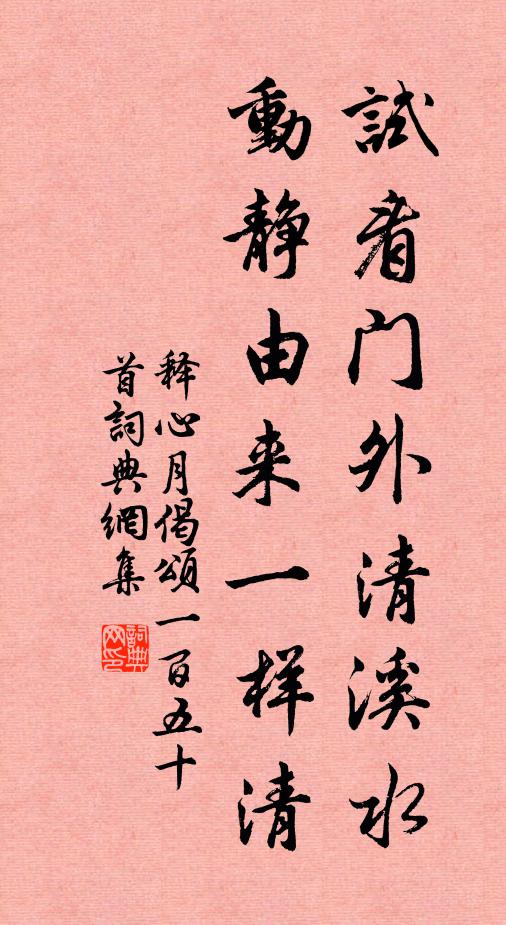 試看門外清溪水
動静由来一样清
释心月偈頌一百五十
首詞典網集
詞典网印